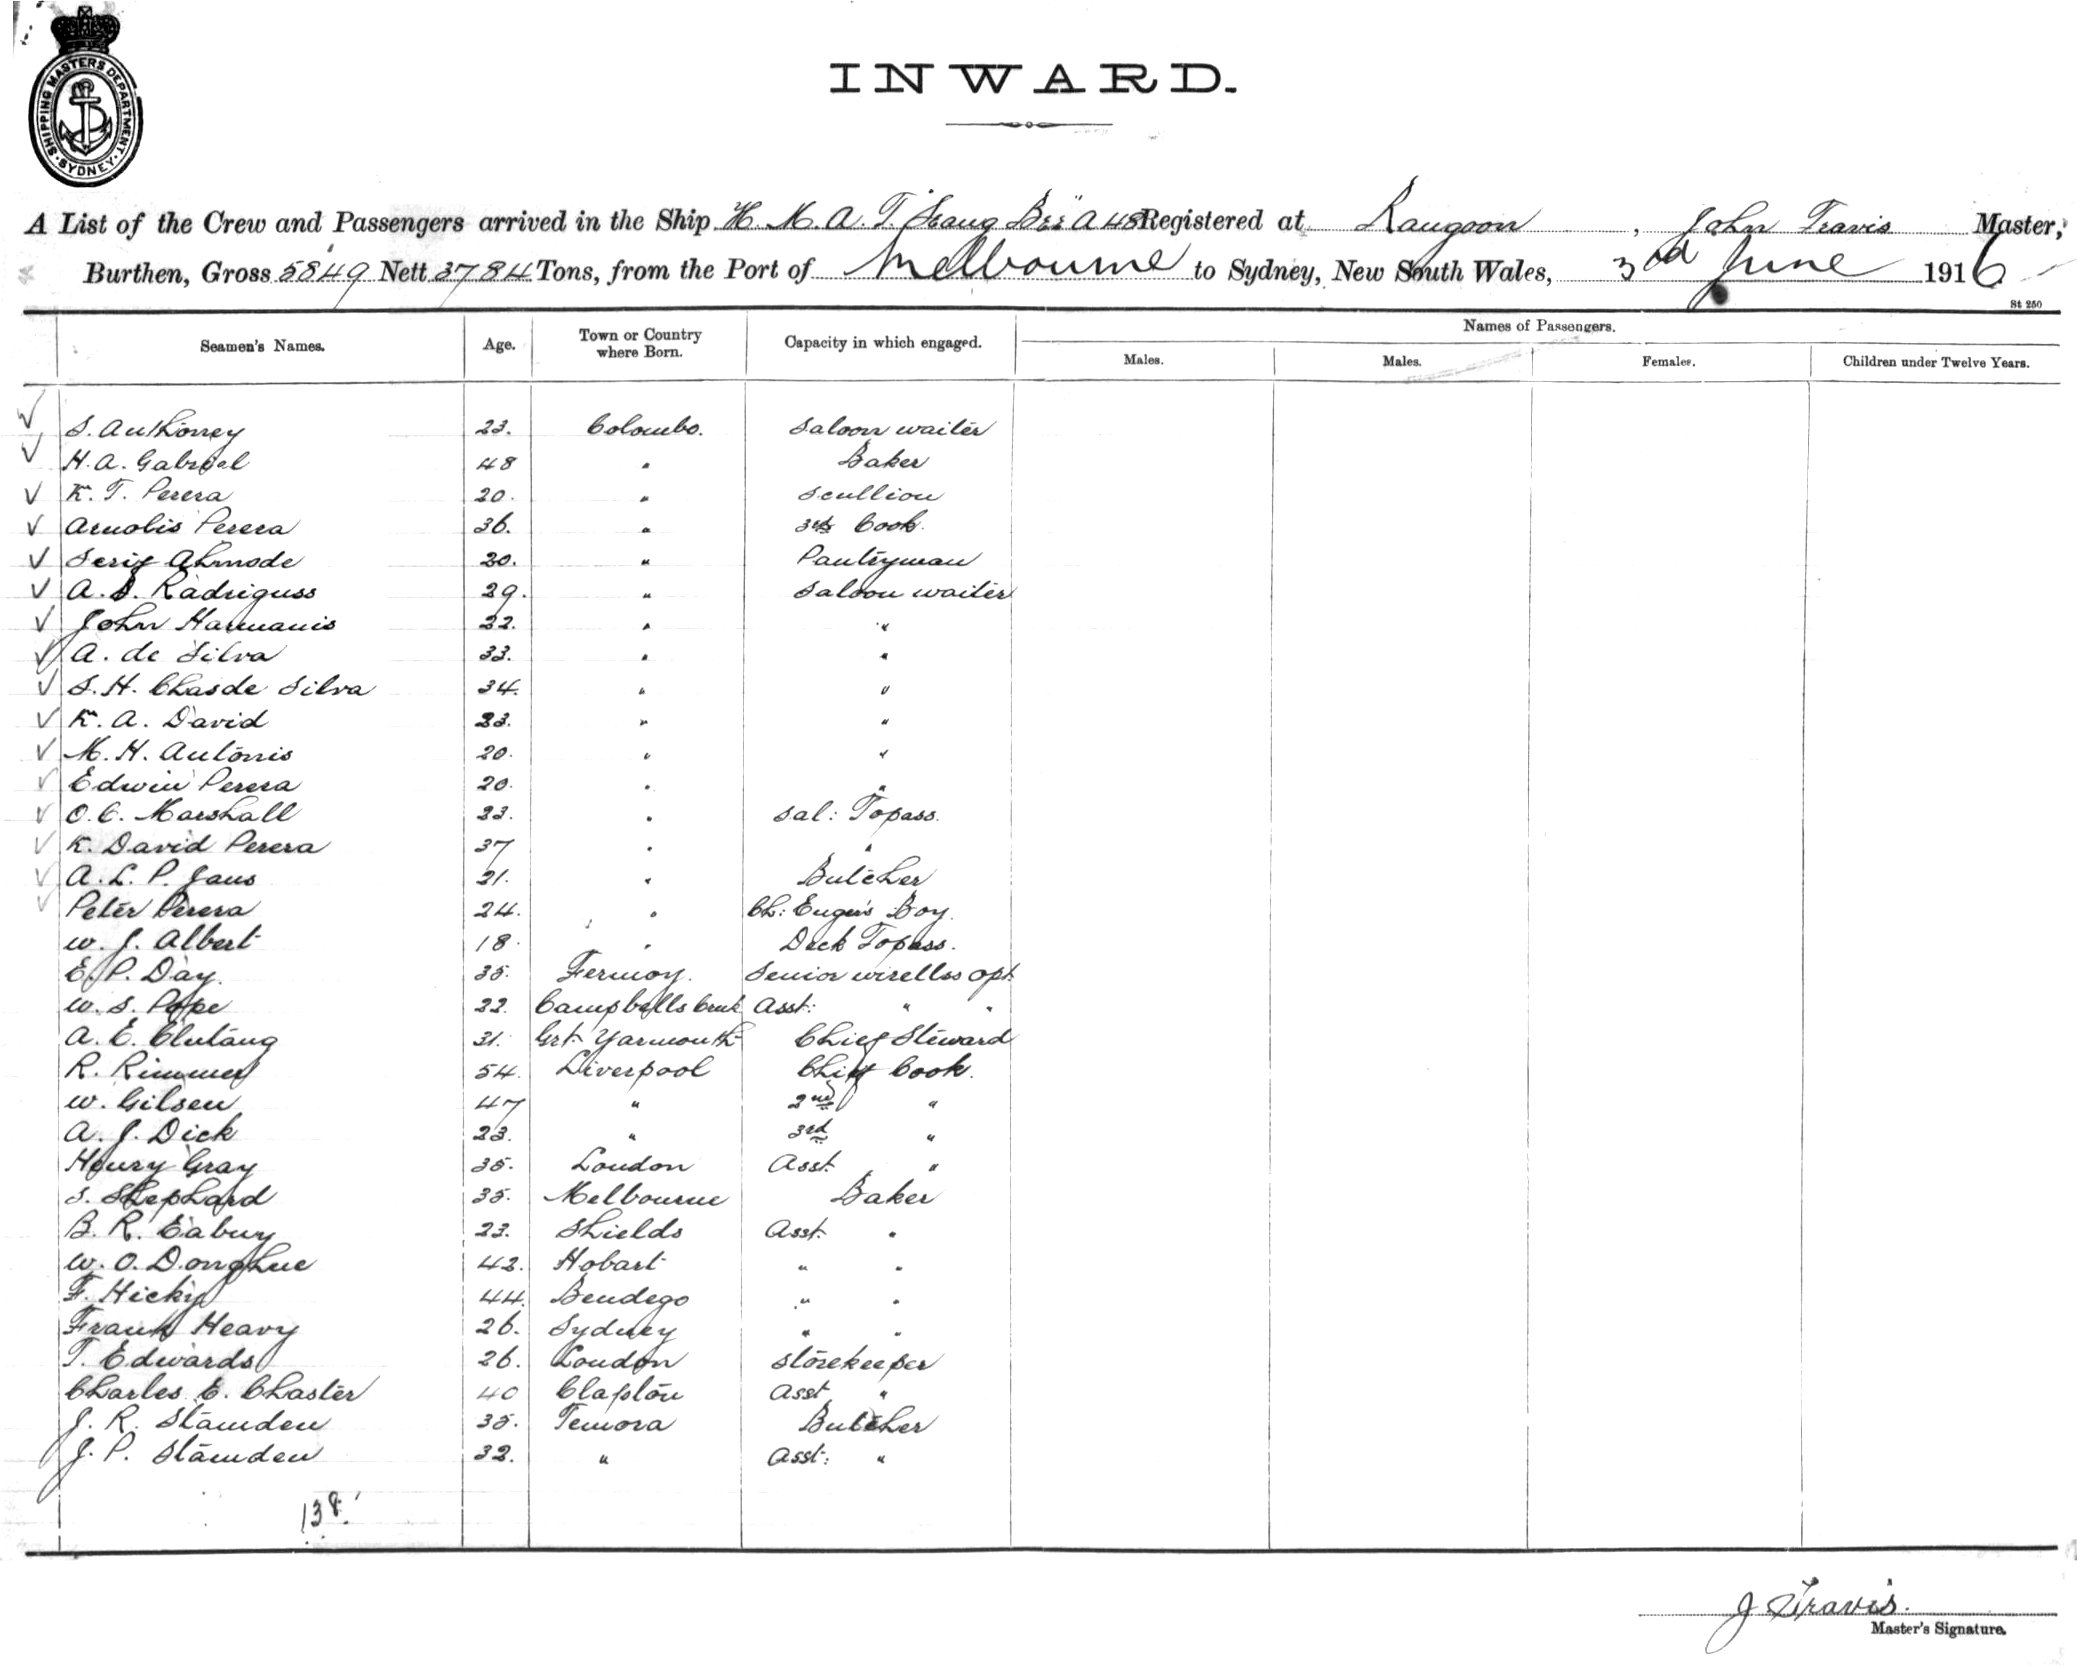 SHIPPING MASTERS DEPARTMENT · SYDNEY ·
INWARD.
A List of the Crew and Passengers arrived in the Ship H.M.A.T. "Seang Bee" A 48 Registered at Rangoon, John Travis Master,
Burthen, Gross 5849 Nett 3784 Tons, from the Port of Melbourne to Sydney, New South Wales, 3rd June 1916
St 250
Seamen's Names. Age. Town or Country where Born. Capacity in which engaged. Names of Passengers.
Males. Males. Females. Children under Twelve Years.
S. Anthoney 23. Colombo. Saloon waiter
H. A. Gabriel 48 " Baker
K. T. Perera 20. " Scullion
Arnolis Perera 36. " 3rd Cook.
Serif Ahmode 20. " Pantryman
A. S. Radriguss 29. " Saloon waiter
John Harmanis 22. " "
A. de Silva 33. " "
S. H. Chasde Silva 34. " "
K. A. David 23. " "
M. H. Antonis 20. " "
Edwin Perera 20. " "
O. C. Marshall 23. " Sal: Topass.
K. David Perera 37 " "
A. L. P. Jans 21. " Butcher
Peter Perera 24. " Ch: Enger's Boy.
W. J. Albert 18. " Deck Topass.
E. P. Day. 35. Fermoy. Senior wirelles Opt.
W. S. Pope 22. Campbells Creek Asst: " "
A. E. Clutang 31. Grt Yarmouth Chief Steward
R. Rimmer 54. Liverpool Chief Cook.
W. Gilsen 47 " 2nd "
A. J. Dick 23. " 3rd "
Henry Gray 35. London Asst. "
S. Shephard 35. Melbourne Baker
B. R. 23. Shields Asst. "
W. O. Donghue 42. Hobart " "
F. Hicky 44. Bendego " "
Frank Heavy 26. Sydney " "
T. Edwards 26. London Storekeeper
Charles E. Chaster 40 Clapton Asst "
J. R. Stamden 35. Temora Butcher
J. P. Stamden 32. " Asst: "
138.
J Travis.
Master's Signature.